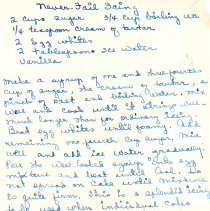 Never Fail Icing
2 cups sugar 3/4 cup boiling wa
1/4 teaspoon cream of tartar
2 Egg whites
2 tablespoons ice water
Vanilla
Make a syrup of one and three fourths
cup of sugar, the cream of tartar, a
pinch of salt and boiling water. mix
well and cook until it strings
much longer than for ordinary icing.
Beat egg whites until foamy. Add
remaining one fourth cup sugar. mix
well and add ice water gradually.
Pour the well cooked syrup into egg
mixture and beat until cool. Do
not spread on cake until mixture
is quite firm. This is a splendid icing
to be used when individual cakes